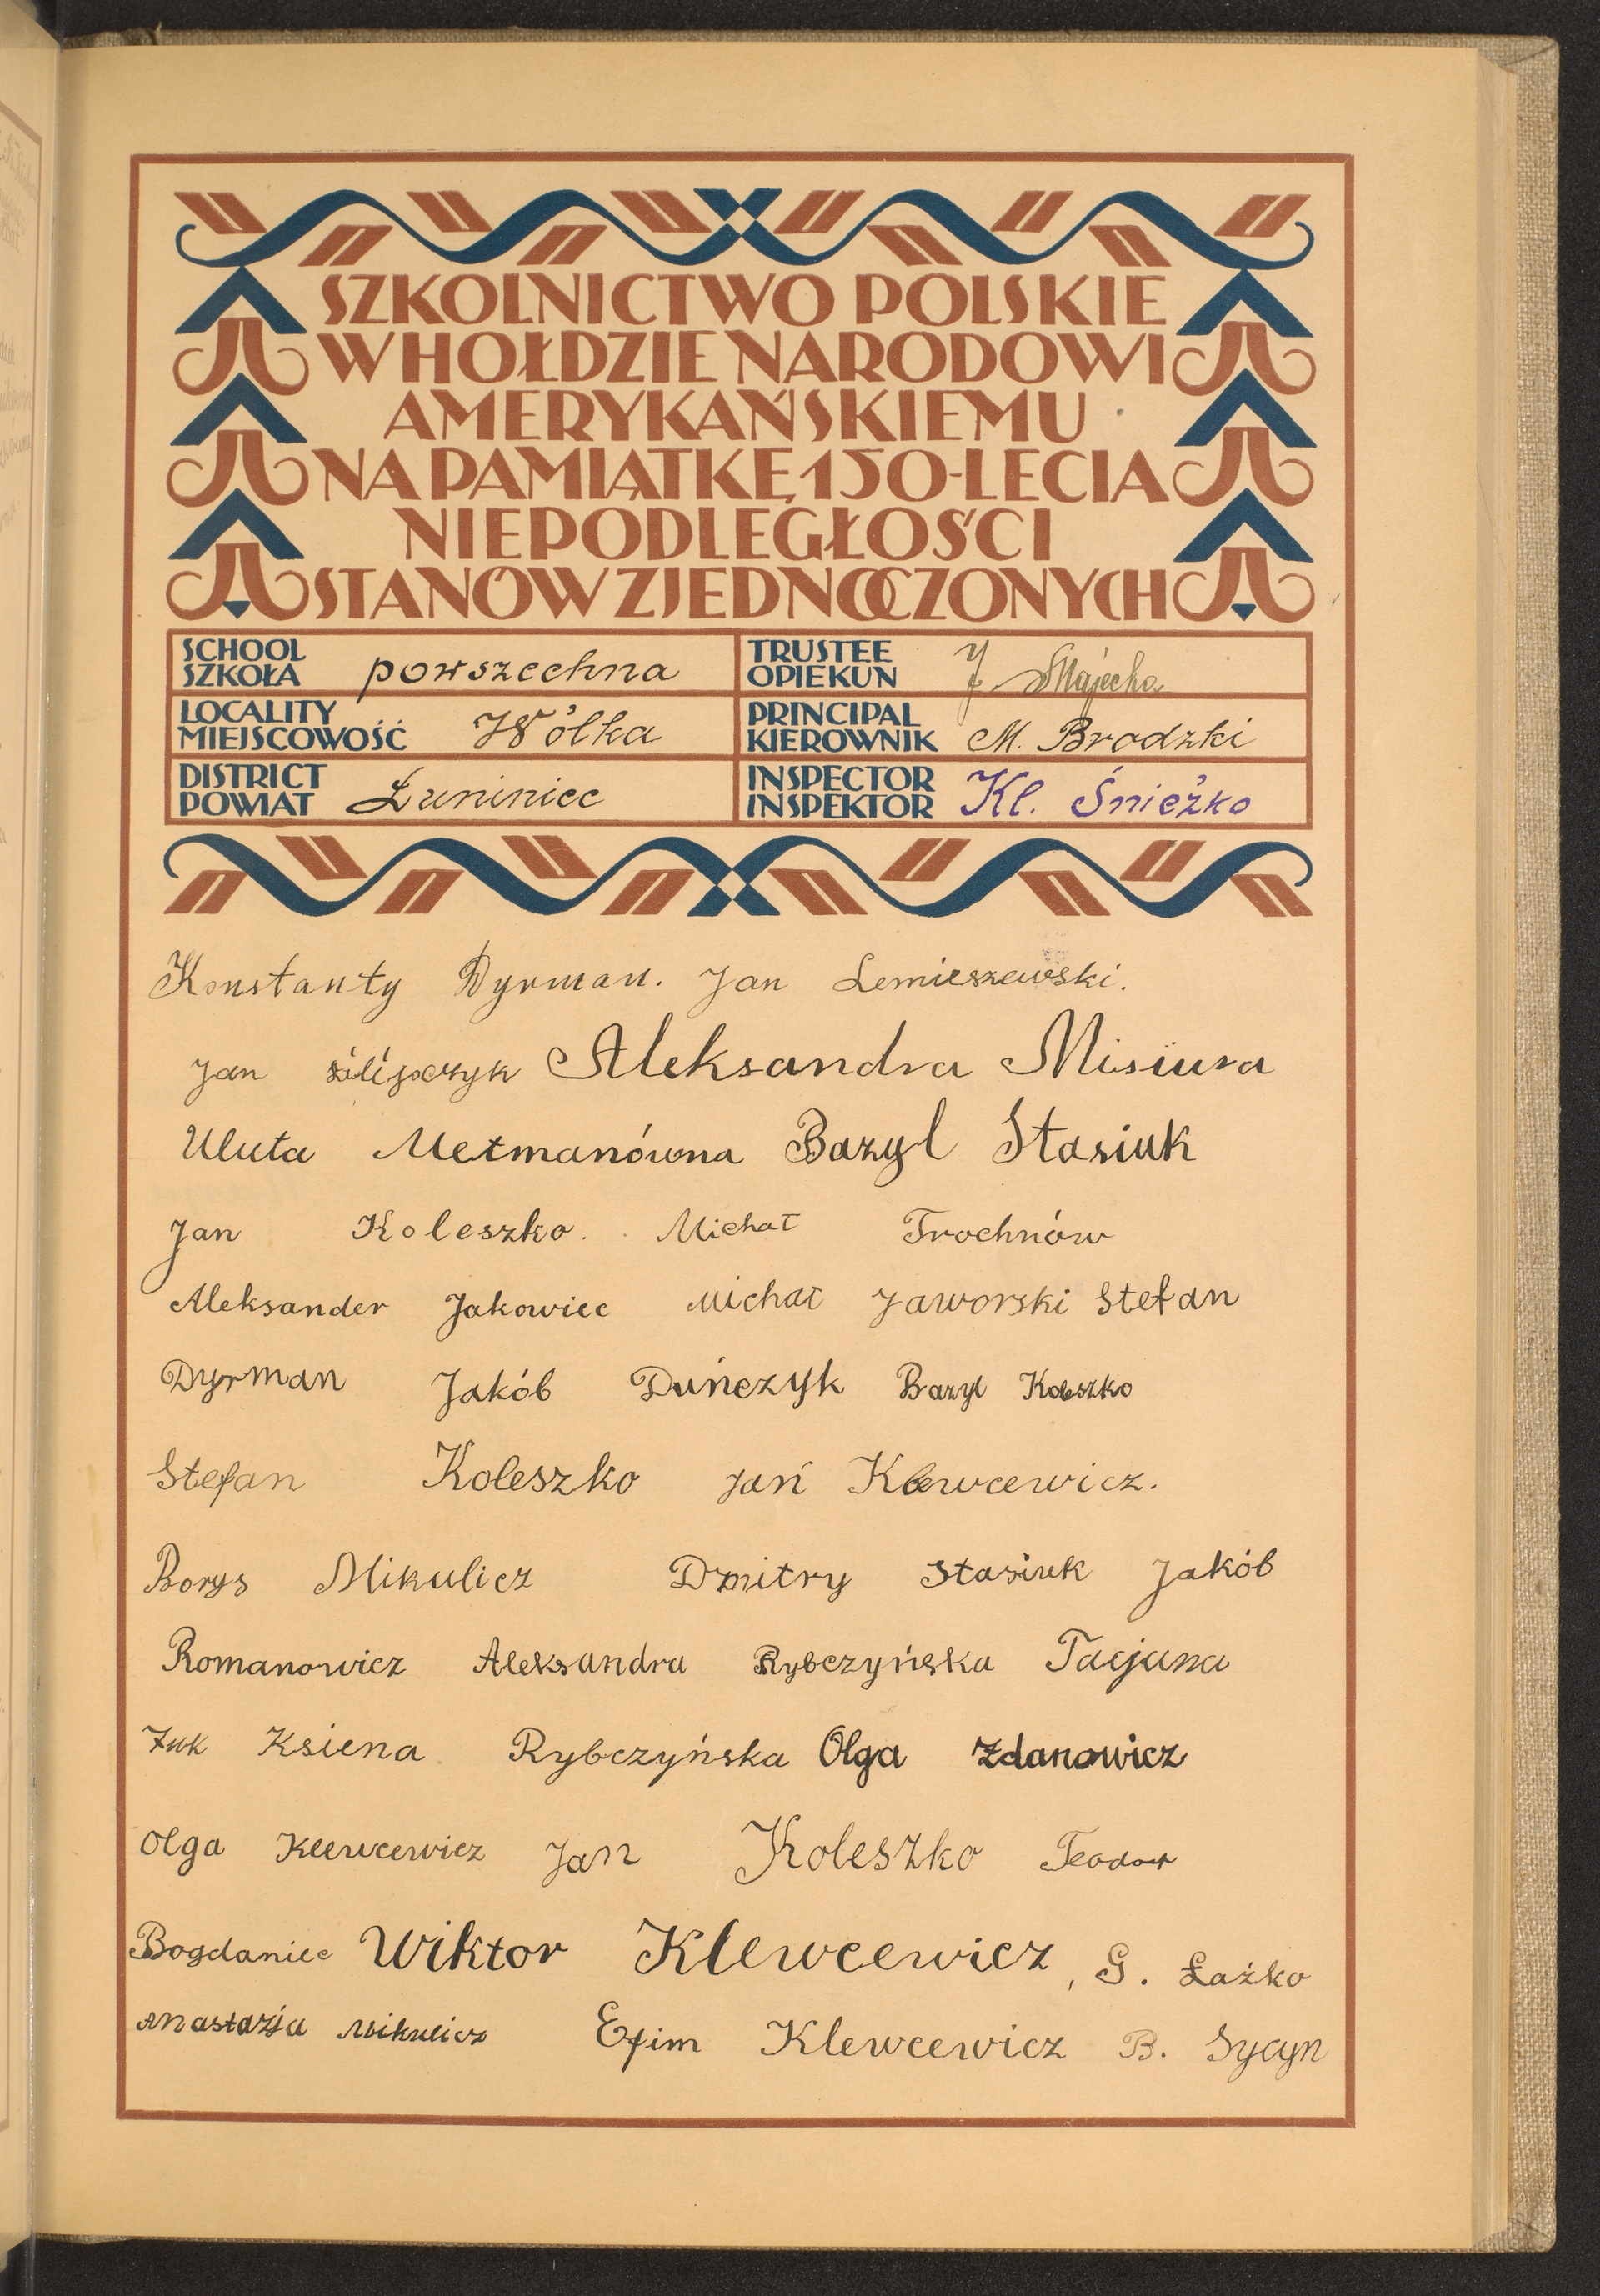 SZKOLNICTWO POLSKIE
W HOŁDZIE NARODOWI
AMERYKAŃSKIEMU
NA PAMIĄTKĘ 150-LECIA
NIEPODLEGŁOŚCI
STANÓW ZJEDNOCZONYCH
SCHOOL
SZKOŁA powszechna
TRUSTEE
OPIEKUN J
LOCALITY
MIEJSCOWOŚĆ Wólka
PRINCIPAL
KIEROWNIK M. Brodzki
DISTRICT
POWIAT Łuniniec
INSPECTOR
INSPEKTOR Kl. Śnieżko
Konstanty Dyrman. Jan Lemieszewski.
Jan Aleksandra Misiura
Uluta Metmanówna Bazyl Stasiuk
Jan Koleszko. Michał Trochnów
Aleksander Jakowiec Michał Jaworski Stefan
Dyrman Jakób Duńczyk Bazyl Koleszko
Stefan Koleszko Jań Klewcewicz.
Borys Mikulicz Dmitry Stasiuk Jakób
Romanowicz Aleksandra Rybczyńska Tacjana
Żuk Ksiena Rybczyńska Olga Zdanowicz
Olga Klewcewicz Jan Koleszko Teodor
Bogdaniec Wiktor Klewcewicz, G. Łażko
Anastazja Mikulicz Efim Klewcewicz B. Sycyn